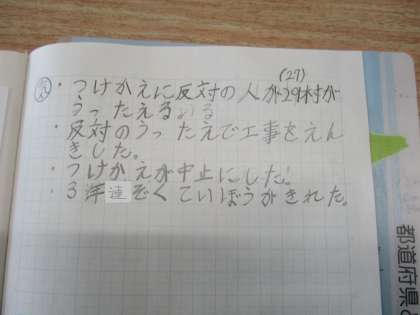 (27)
・つけかえに反対の人が29村が
うったえるいる
・反対のうったえで工事をえん
きした。
・つけかえが中止にした!
・3年連ぞくていぼうがきれた。
都道府県